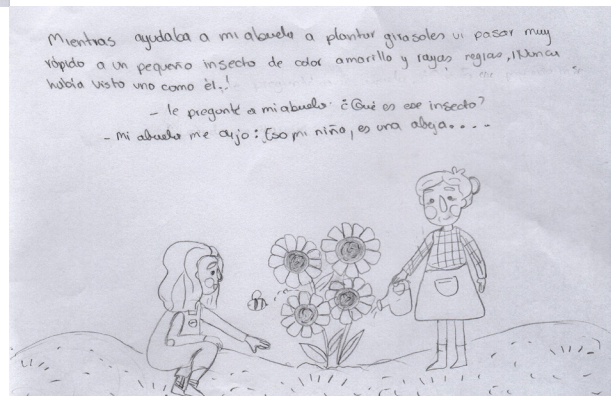 Mientras ayudaba a mi abuela a plantar girasoles vi pasar muy
rápido a un pequeño insecto de color amarillo y rayas negras, ¡Nunca
había visto uno como él.!
- le pregunté a mi abuela: ¿Qué es ese insecto?
- Mi abuela me dijo: Eso mi niña, es una abeja....